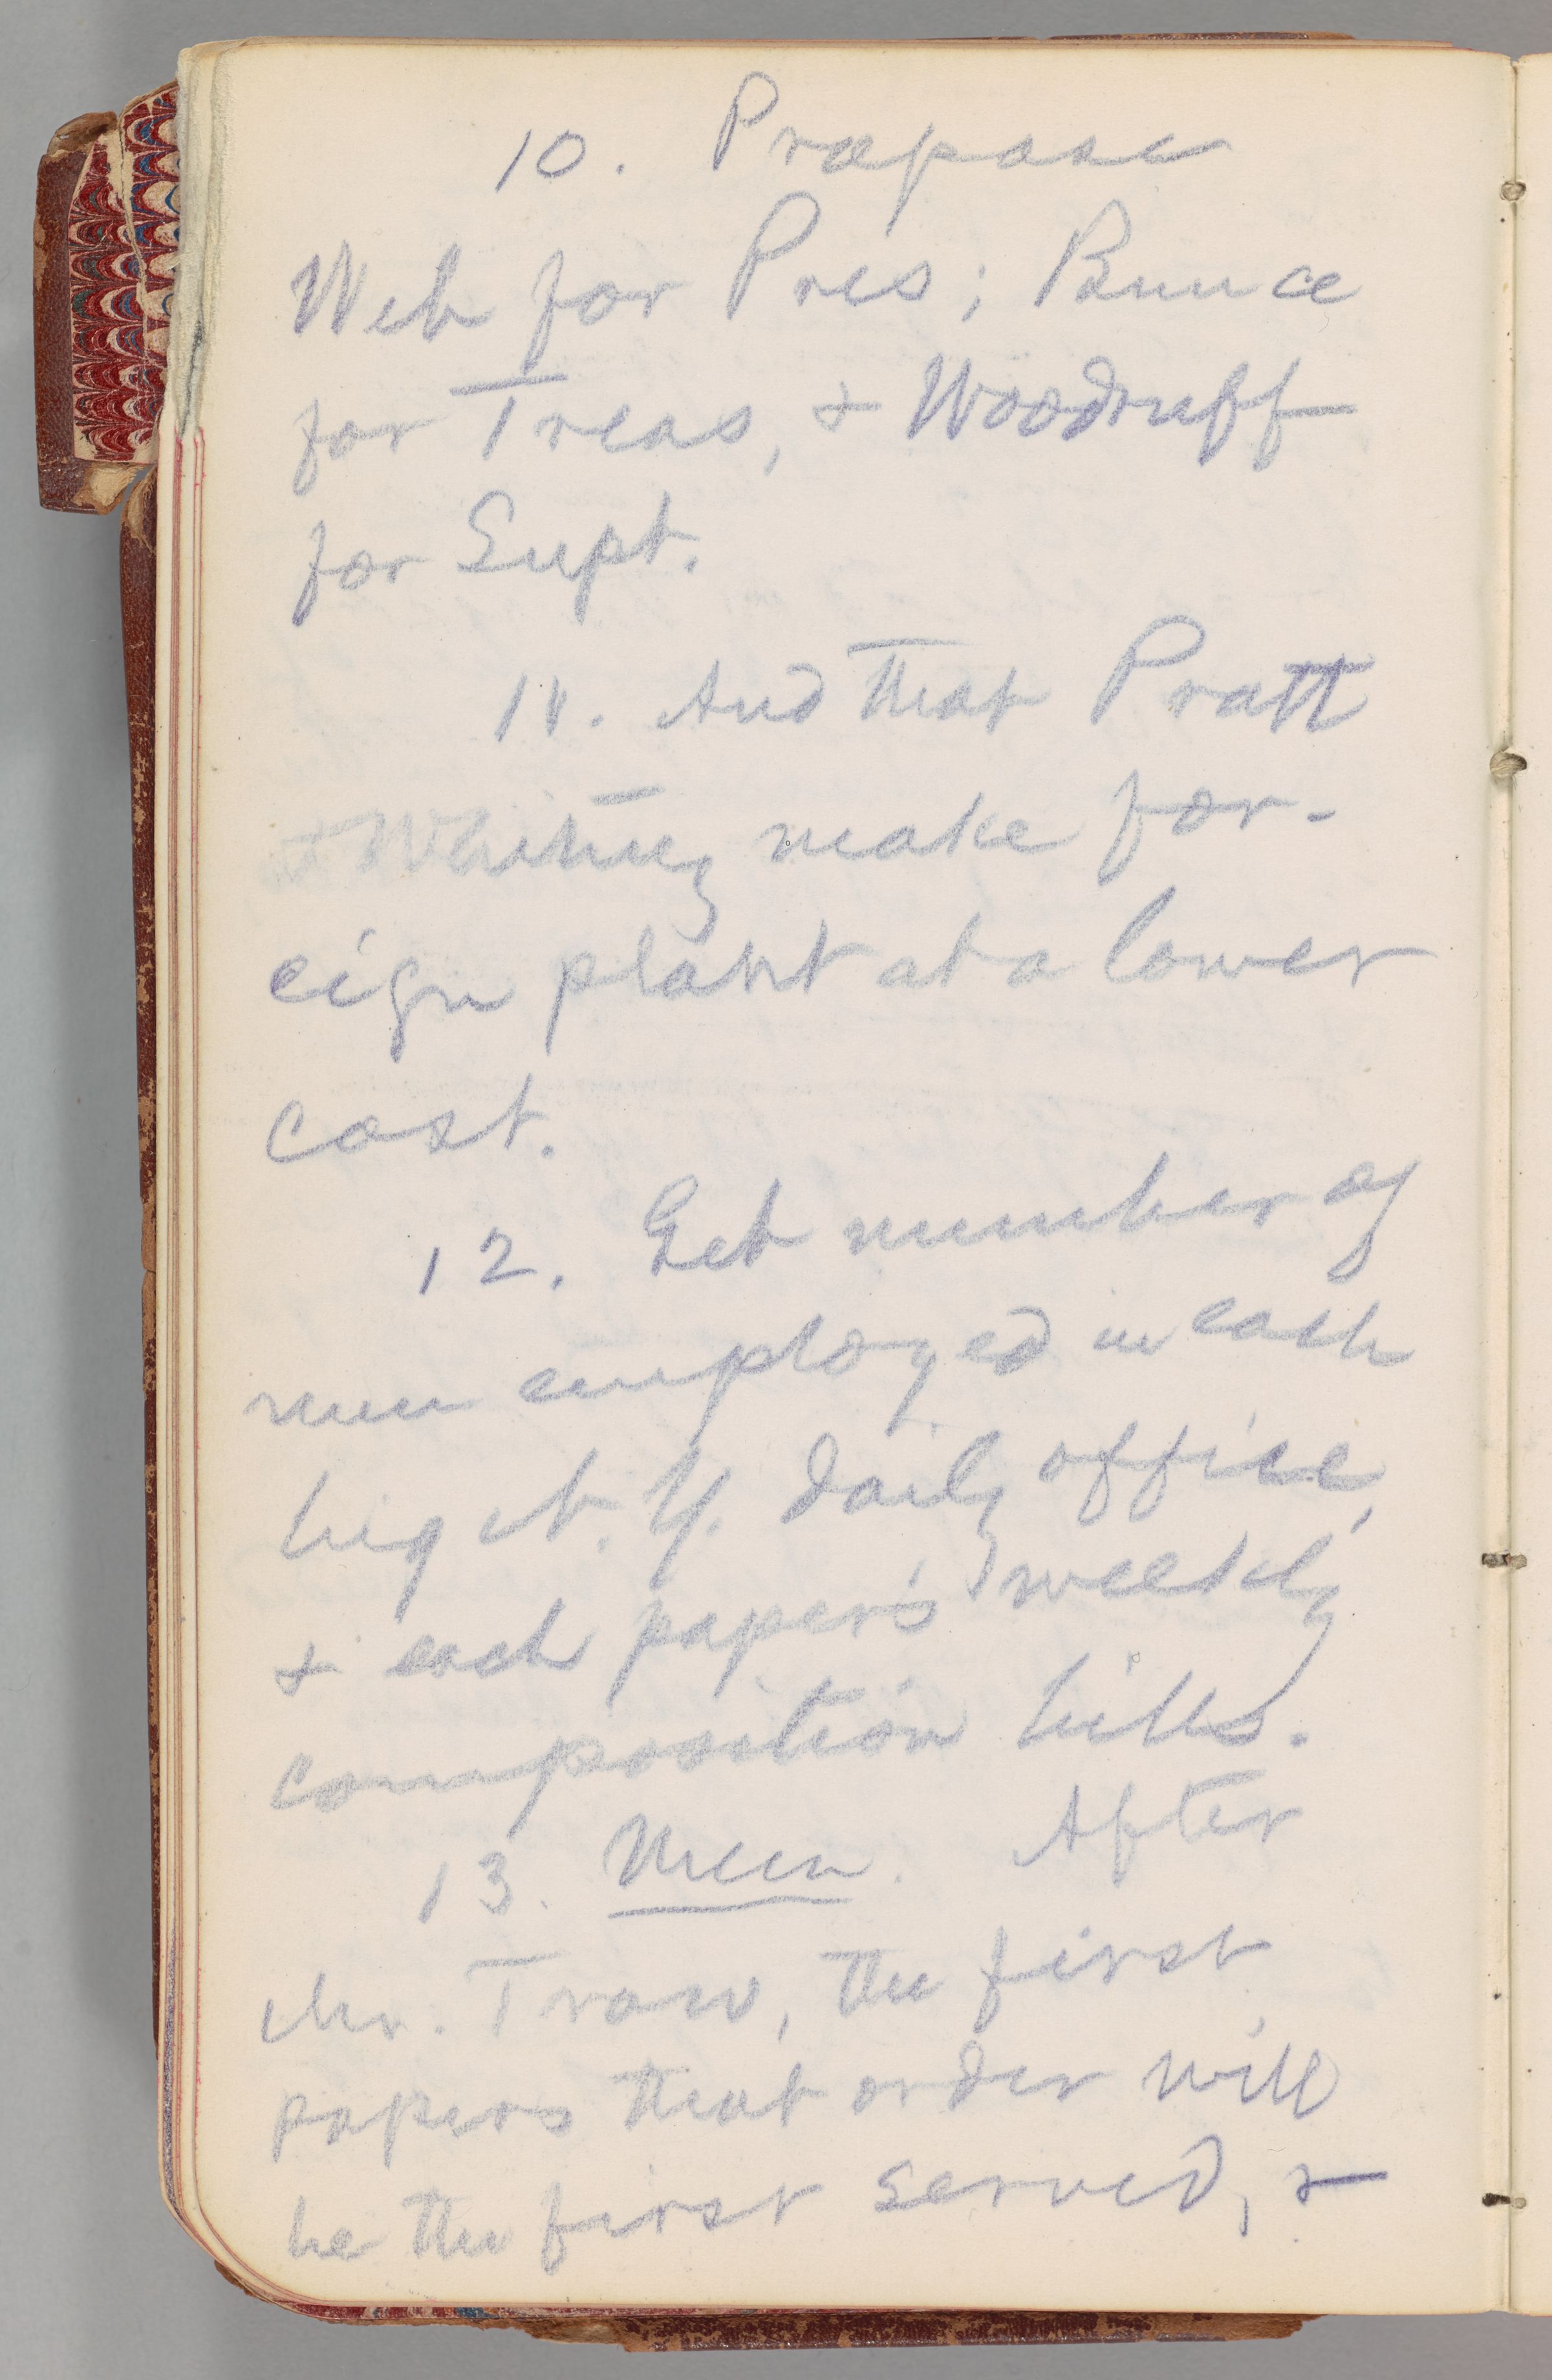 10. Propose
Web for Pres; Bunce
for Treas, & Woodruff
for Supt.
11. And that Pratt
& Whitney make for-
eign plant at a lower
cost.
12. Get number of
men employed in each
big N. Y. daily office,
& each paper's weekly
composition bills.
13. Mem. After
Mr. Trow, the first
papers that order will
be the first served, &